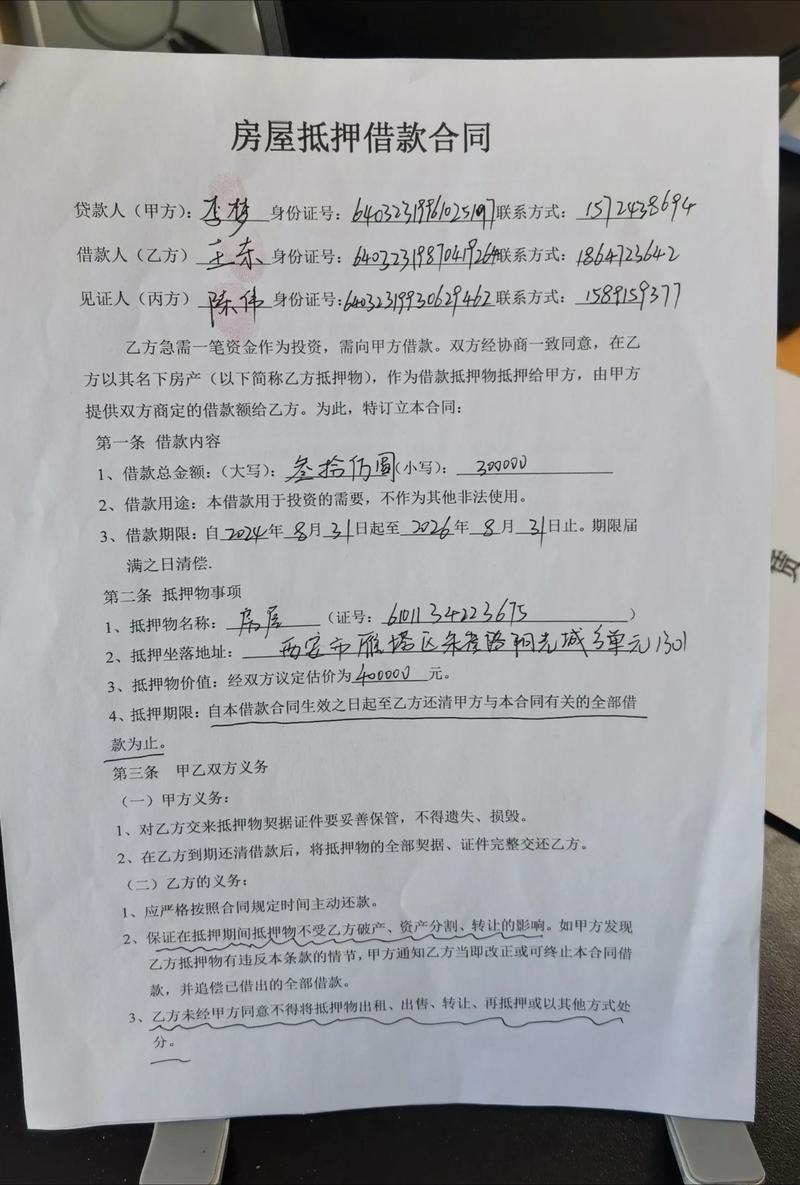 房屋抵押借款合同
贷款人（甲方）：李梦 身份证号：640323199610251197 联系方式：1572438694
借款人（乙方） 王东 身份证号：64032319870419264 联系方式：1864723642
见证人（丙方） 陈伟 身份证号：64032319930629462 联系方式：1589159377
乙方急需一笔资金作为投资，需向甲方借款。双方经协商一致同意，在乙
方以其名下房产（以下简称乙方抵押物），作为借款抵押物抵押给甲方，由甲方
提供双方商定的借款额给乙方。为此，特订立本合同：
第一条 借款内容
1、借款总金额：（大写）：叁拾万圆（小写）：300000
2、借款用途：本借款用于投资的需要，不作为其他非法使用。
3、借款期限：自2024年8月31日起至2026年8月31日止。期限届
满之日清偿.
第二条 抵押物事项
1、抵押物名称：房屋（证号：6101134223675）
2、抵押坐落地址：西安市雁塔区朱雀路阳光城 单元1301
3、抵押物价值：经双方议定估价为400000元。
4、抵押期限：自本借款合同生效之日起至乙方还清甲方与本合同有关的全部借
款为止。
第三条 甲乙双方义务
（一）甲方义务：
1、对乙方交来抵押物契据证件要妥善保管，不得遗失、损毁。
2、在乙方到期还清借款后，将抵押物的全部契据、证件完整交还乙方。
（二）乙方的义务：
1、应严格按照合同规定时间主动还款。
2、保证在抵押期间抵押物不受乙方破产、资产分割、转让的影响。如甲方发现
乙方抵押物有违反本条款的情节，甲方通知乙方当即改正或可终止本合同借
款，并追偿已借出的全部借款。
3、乙方未经甲方同意不得将抵押物出租、出售、转让、再抵押或以其他方式处
分。